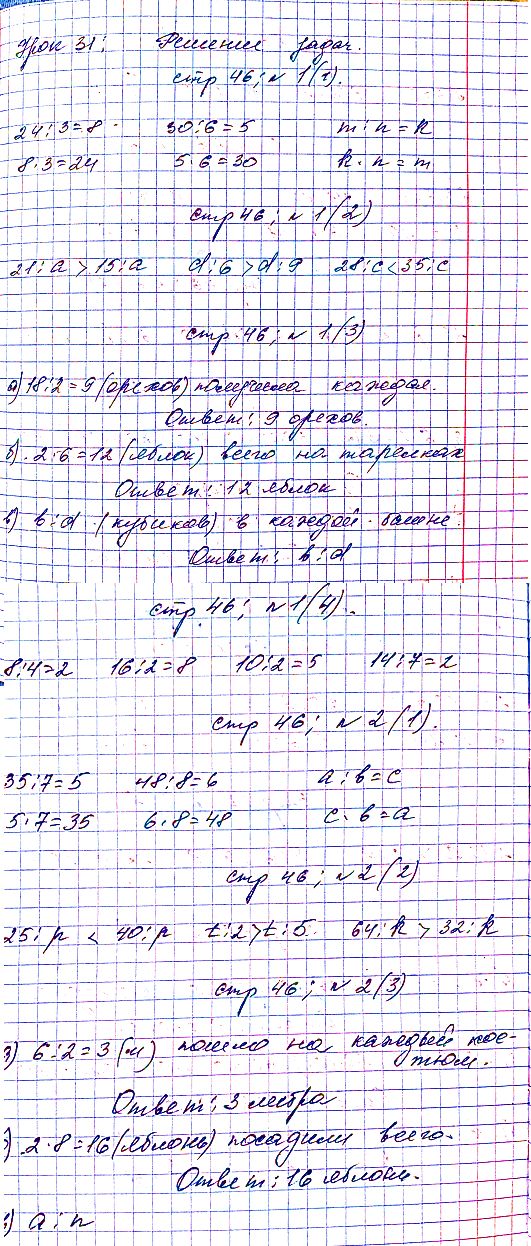 Урок 31: Решение задач.
стр 46; № 1(1).
24:3=8 30:6=5 m:n=k
8·3=24 5·6=30 k·n=m
стр 46; № 1(2)
21:a > 15:a d:6 > d:9 28:c < 35:c
стр 46; № 1(3)
а) 18:2=9 (орехов) получила каждая.
Ответ: 9 орехов.
б) 2·6=12 (яблок) всего на тарелках
Ответ: 12 яблок
в) b:d (кубиков) в каждой башне.
Ответ: b:d
стр 46; № 1(4).
8:4=2 16:2=8 10:2=5 14:7=2
стр 46; № 2(1).
35:7=5 48:8=6 a:b=c
5·7=35 6·8=48 c·b=a
стр 46; № 2(2)
25:p < 40:p t:2>t:5. 64:k > 32:k
стр 46; № 2(3)
а) 6:2=3 (м) пошло на каждый кос-
тюм.
Ответ: 3 метра
) 2·8=16 (яблонь) посадили всего.
Ответ: 16 яблонь.
) a:n